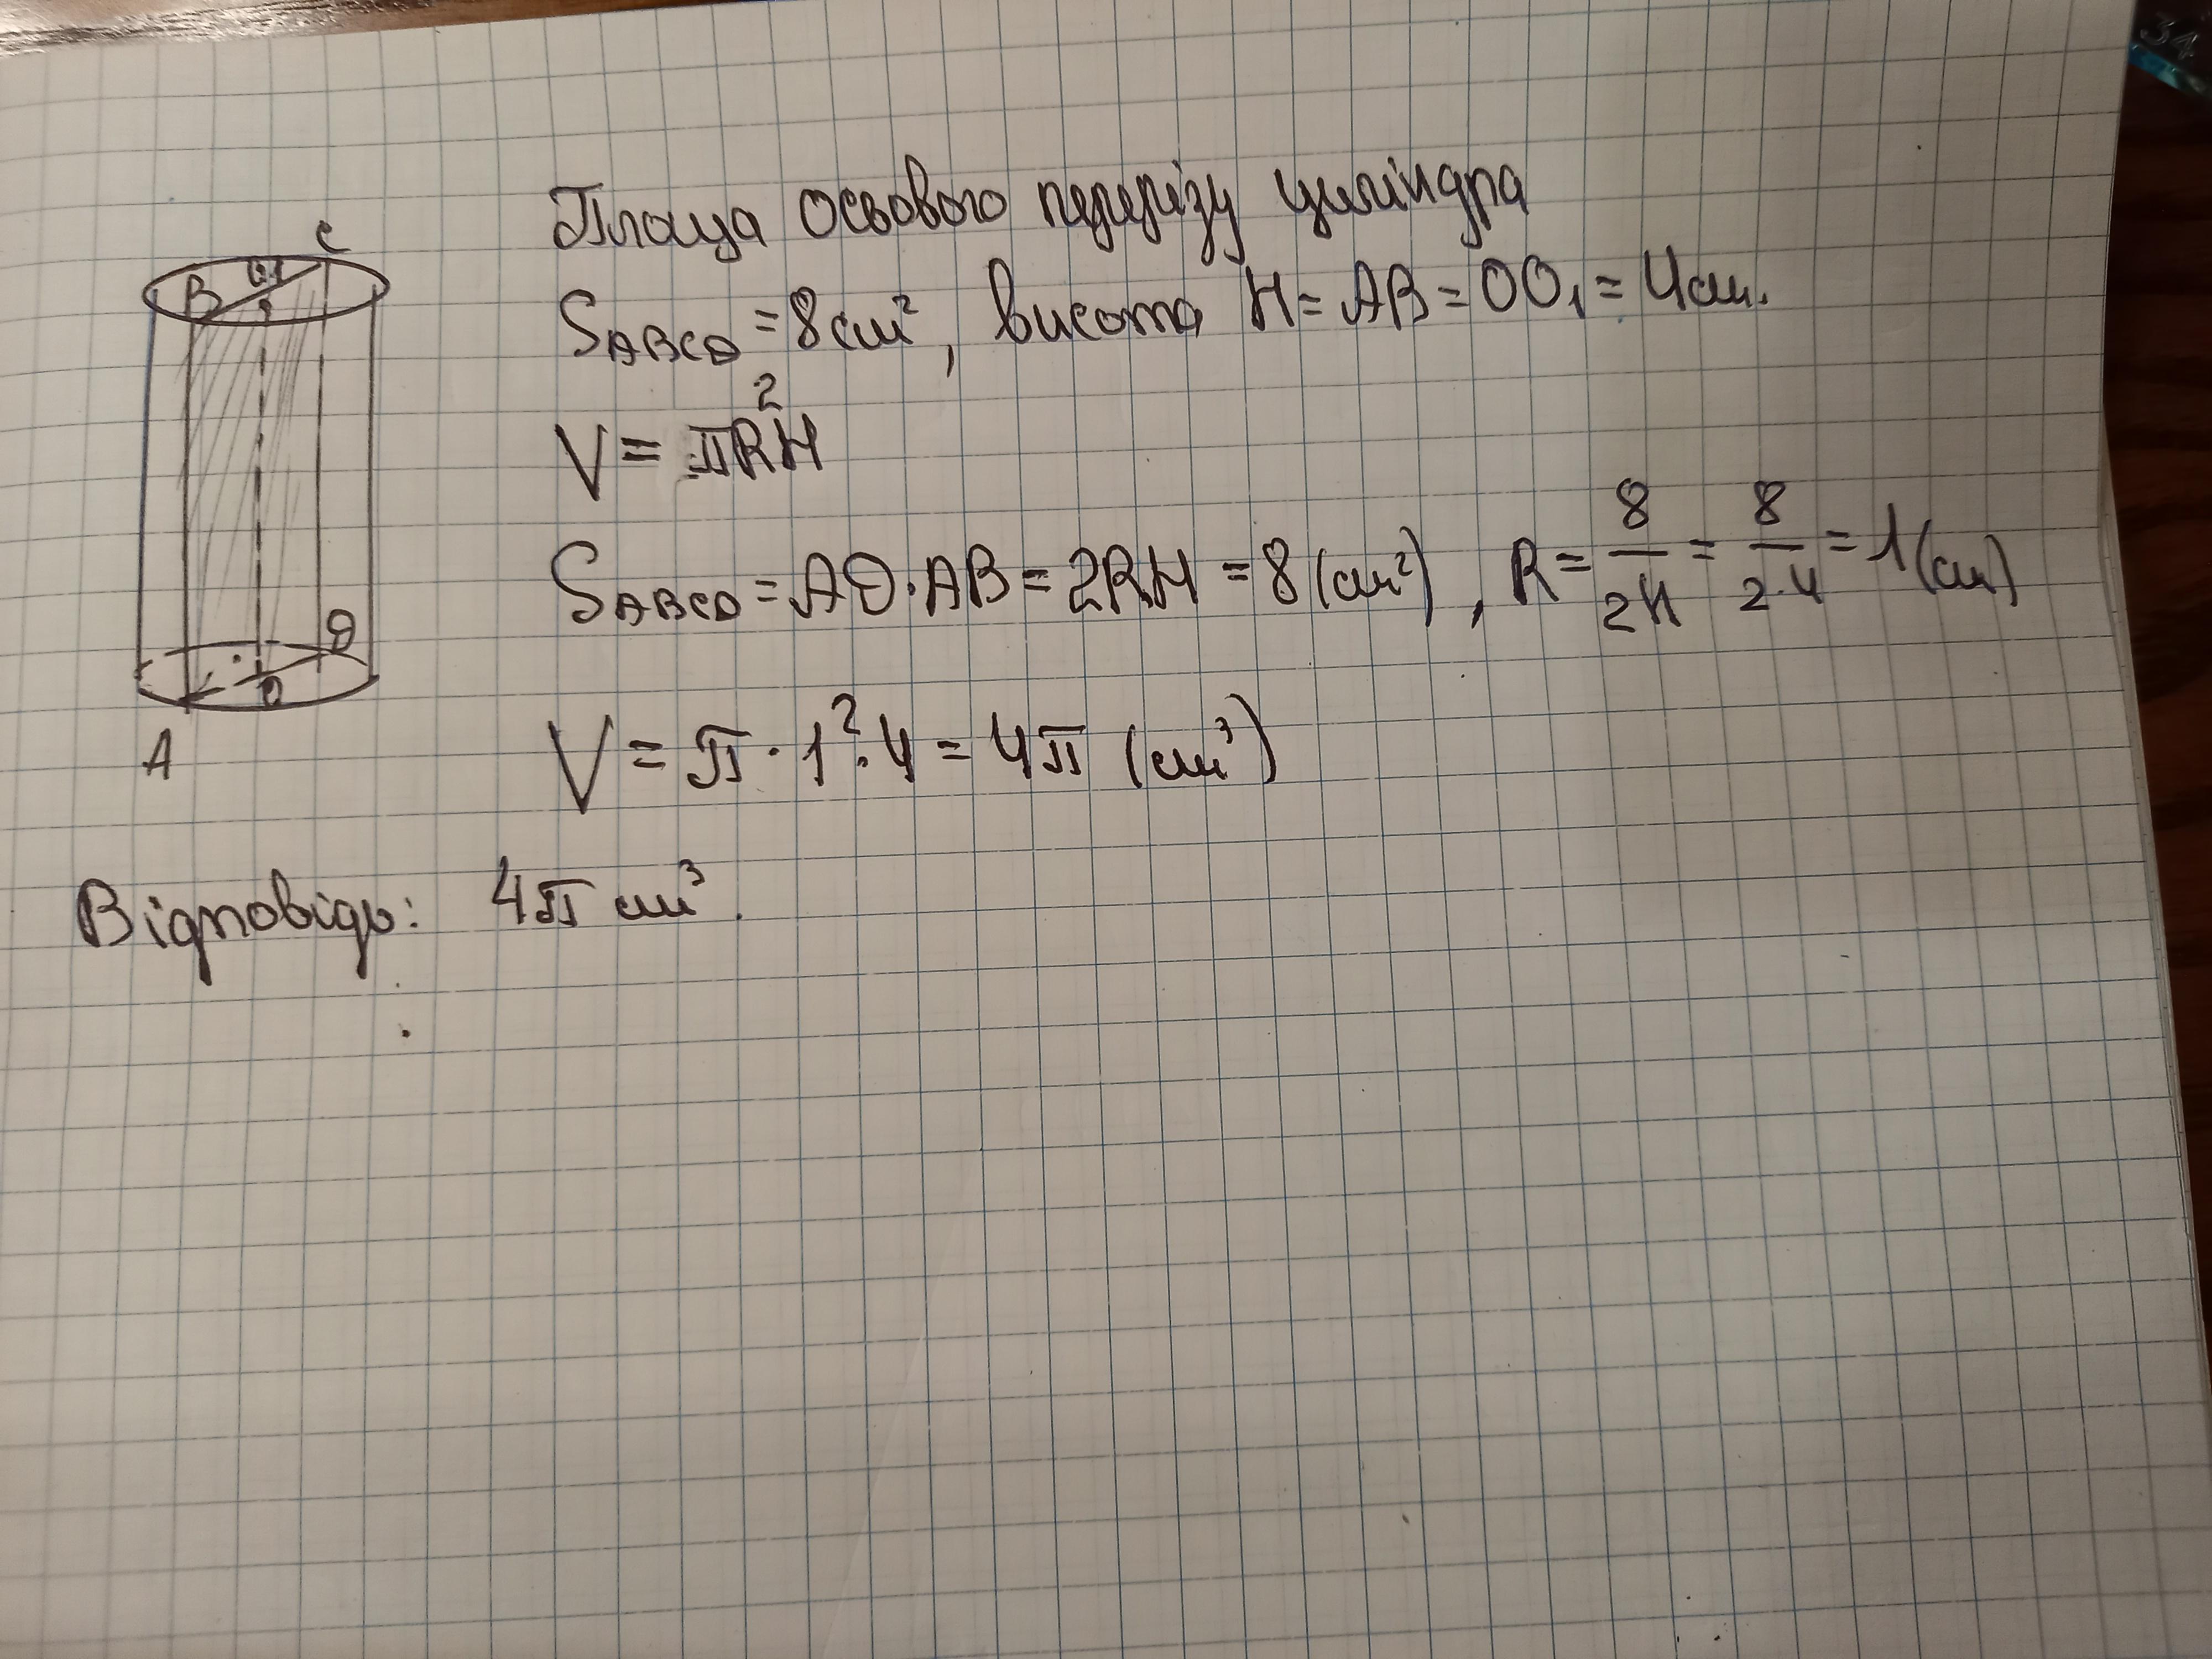 Площа осьового перерізу циліндра
S_ABCD = 8 см², висота H = AB = OO₁ = 4 см.
V = πR²H
S_ABCD = AD · AB = 2RH = 8 (см²), R = 8/2H = 8/2·4 = 1 (см)
V = π · 1² · 4 = 4π (см³)
Відповідь: 4π см³.
C
B
O1
D
O
A
34